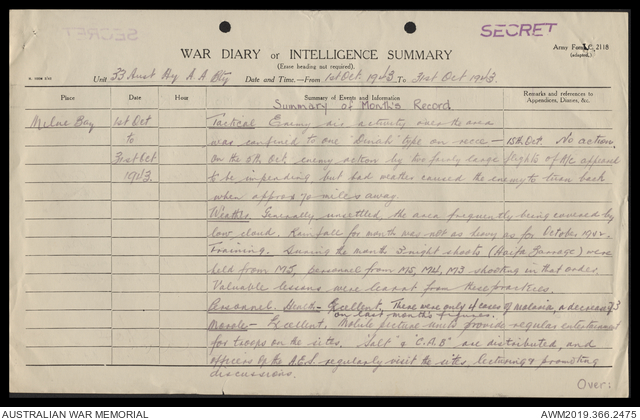 SECRET
SECRET
Army Form C. 2118
(adapted.)
WAR DIARY or INTELLIGENCE SUMMARY
(Erase heading not required).
Unit 33 Aust Hy A A Bty Date and Time—From 1st Oct. 1943 To 31st Oct 1943.
Place
Date
Hour
Summary of Events and Information
Remarks and references to
Appendices, Diaries, &c.
Summary of Month's Record
Milne Bay
1st Oct
to
31st Oct
1943.
Tactical Enemy air activity over the area
was confined to one "Dinah" type on recce - 15th Oct. No action.
on the 9th Oct. enemy action by two fairly large flights of A/c appeared
to be impending but bad weather caused the enemy to turn back
when approx 70 miles away.
Weather. Generally unsettled, the area frequently being covered by
low cloud. Rainfall for month was not as heavy as for October 1942.
Training. During the month 3 night shoots (Haifa Barrage) were
held from M3, personnel from M5, M4, M3 shooting in that order.
Valuable lessons were learnt from these practices.
Personnel. Health - Excellent. There were only 4 cases of malaria, a decrease of 3
on last month's figures.
Morale - Excellent. Mobile picture units provide regular entertainment
for troops on the sites. "Salt" & "C.A.B" are distributed, and
officers of the A.E.S. regularly visit the sites, lecturing & promoting
discussions.
Over:
AUSTRALIAN WAR MEMORIAL
AWM2019.366.2475